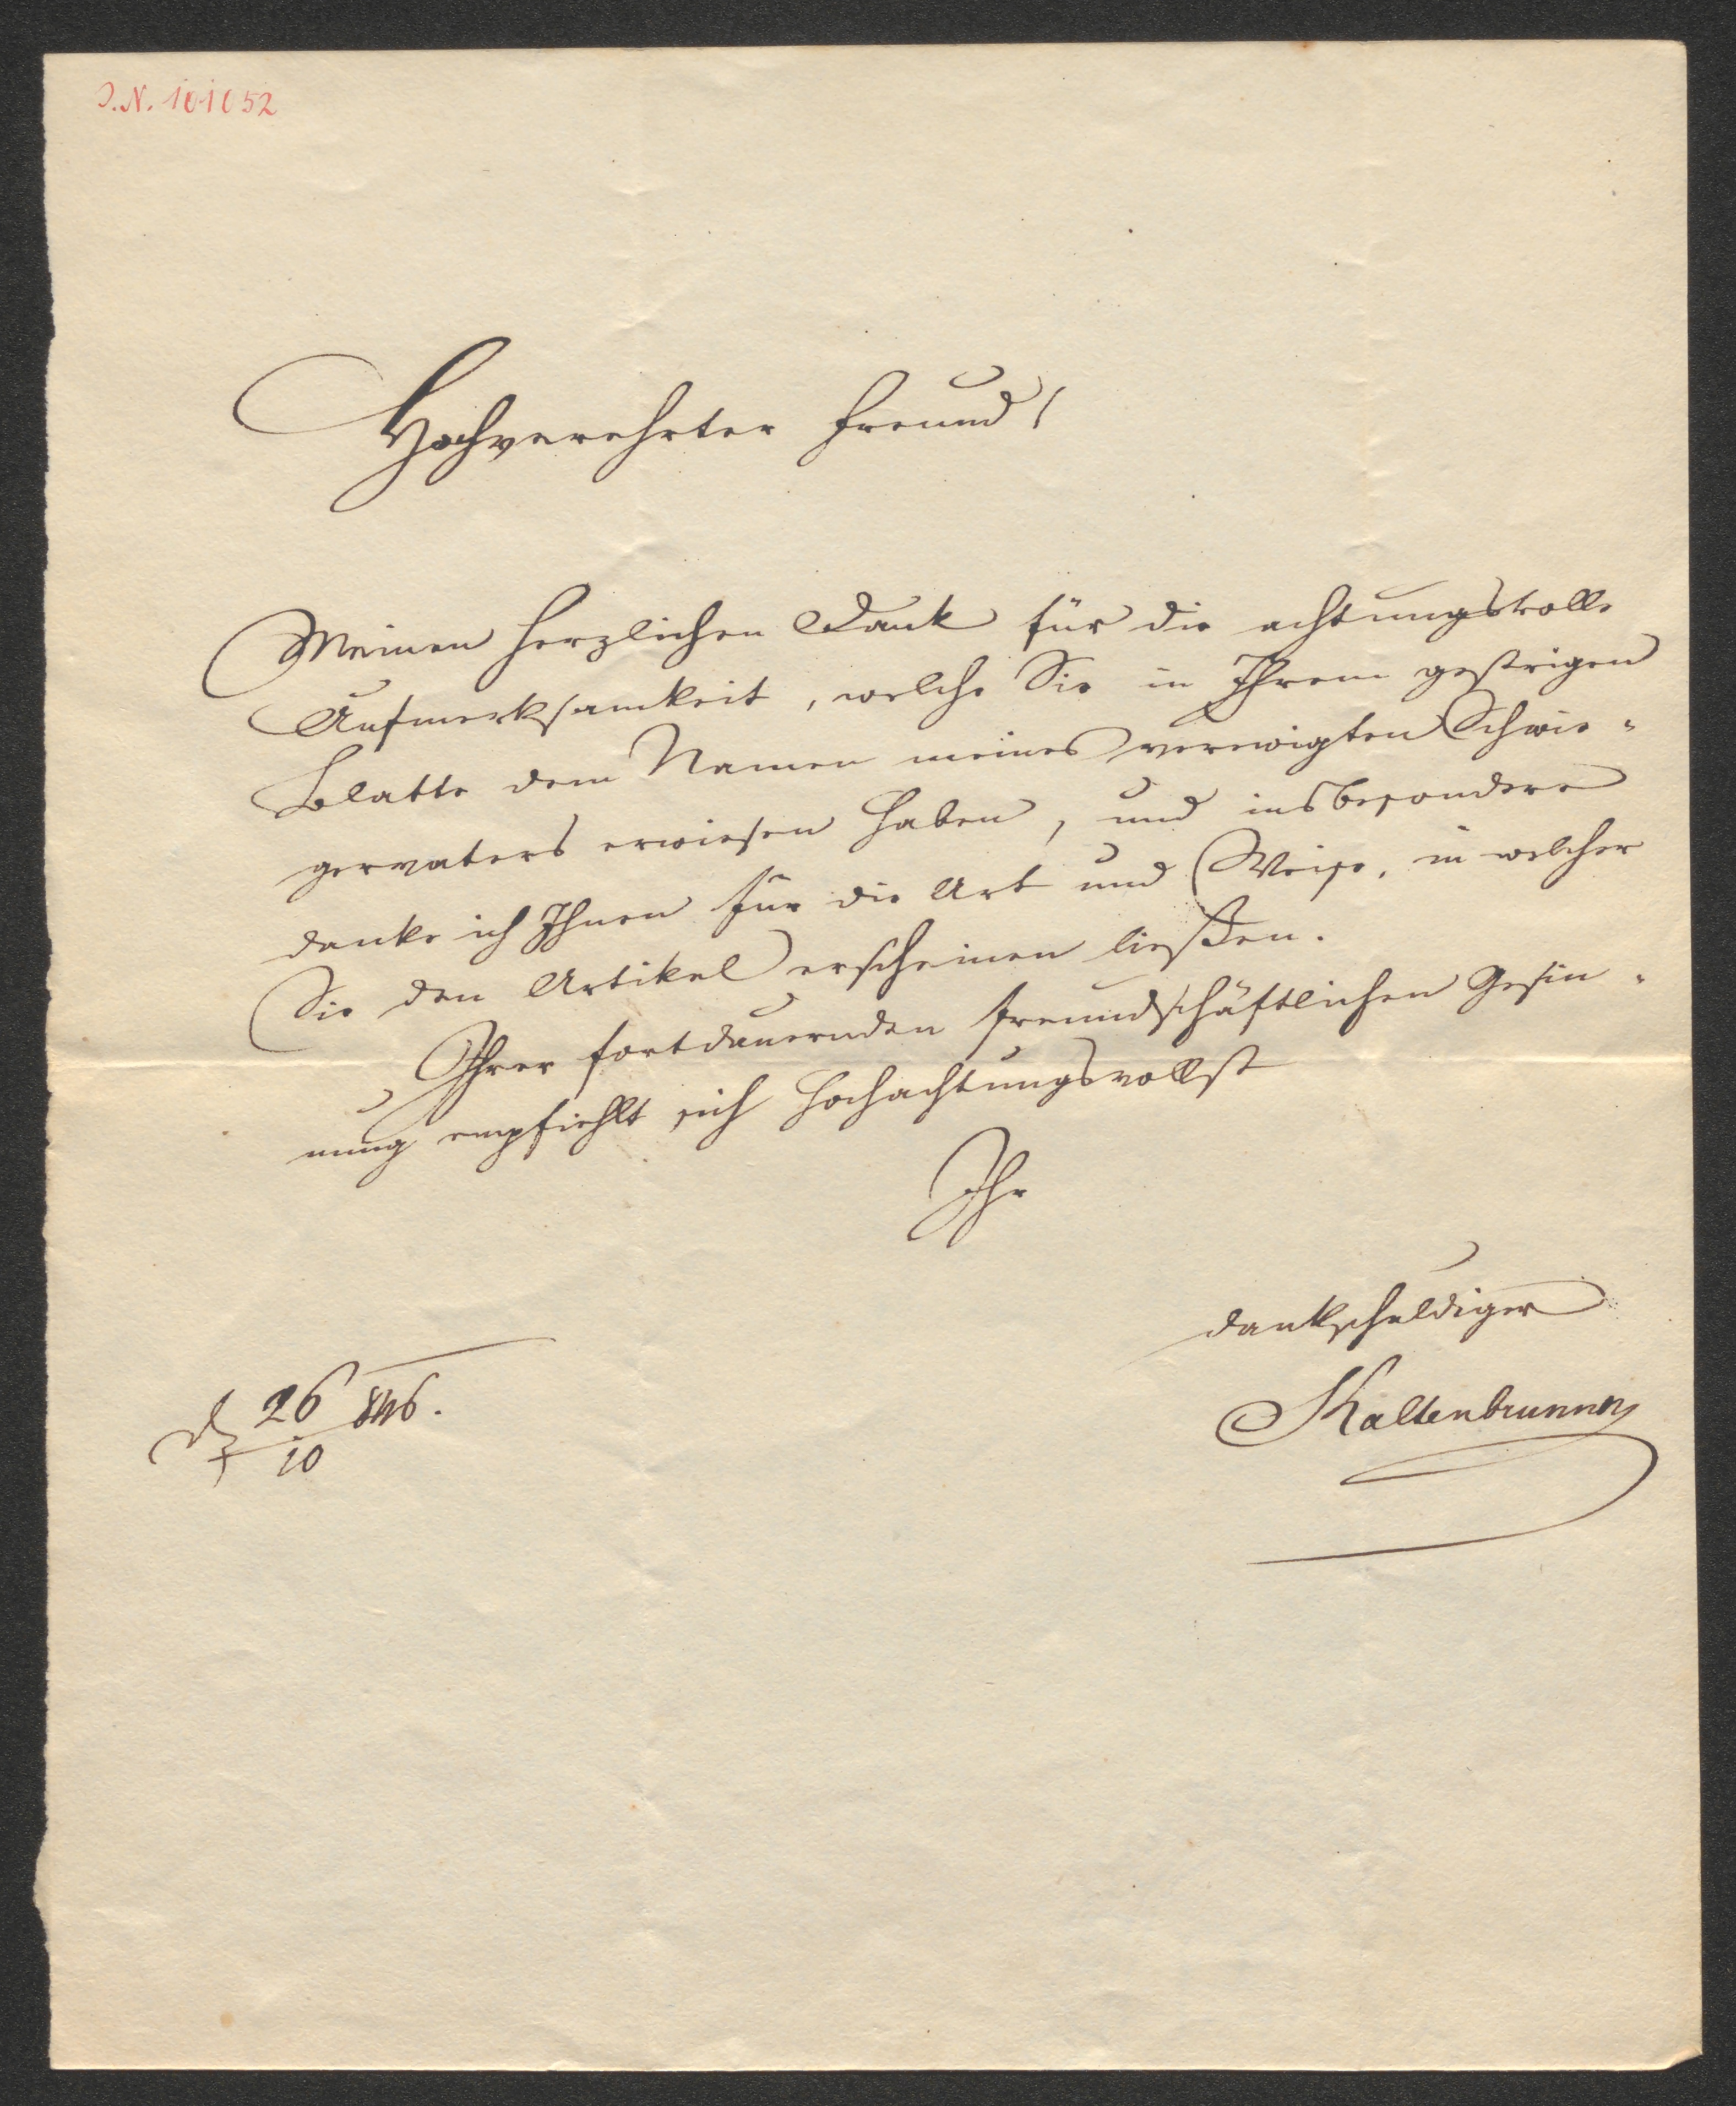 J.N. 101052
Hochverehrter Freund!
Meinen herzlichen Dank für die achtungsvolle
Aufmerksamkeit, welche Sie in Ihrem gestrigen
Blatte dem Namen meines verewigten Schwie-
gervaters erwiesen haben, und insbesondere
danke ich Ihnen für die Art und Weise, in welcher
Sie den Artikel erscheinen ließen.
Ihrer fortdauernden freundschäftlichen Gesin-
nung empfiehlt sich hochachtungsvollst
Ihr
dankschuldiger
Kaltenbrunner
26/10 846.